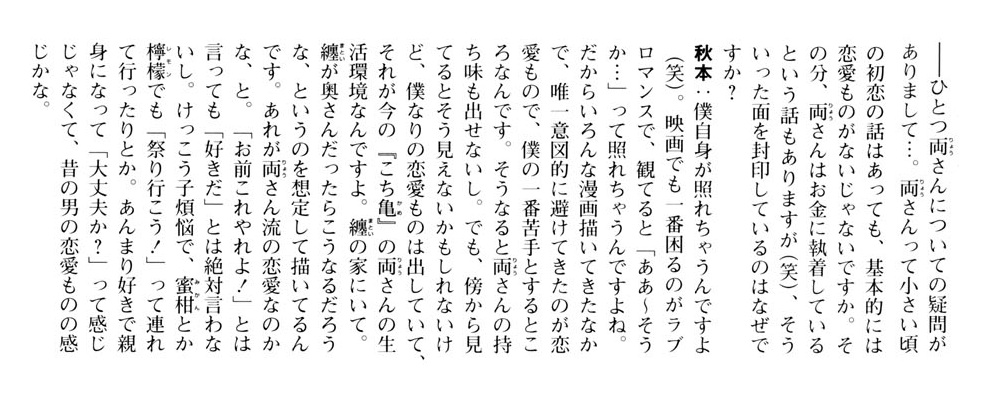 ――ひとつ両さんについての疑問が
ありまして…。両さんって小さい頃
の初恋の話はあっても、基本的には
恋愛ものがないじゃないですか。そ
の分、両さんはお金に執着している
という話もありますが（笑）、そう
いった面を封印しているのはなぜで
すか？
秋本：僕自身が照れちゃうんですよ
（笑）。映画でも一番困るのがラブ
ロマンスで、観てると「ああ〜そう
か…」って照れちゃうんですよね。
だからいろんな漫画描いてきたなか
で、唯一意図的に避けてきたのが恋
愛もので、僕の一番苦手とするとこ
ろなんです。そうなると両さんの持
ち味も出せないし。でも、傍から見
てるとそう見えないかもしれないけ
ど、僕なりの恋愛ものは出していて、
それが今の『こち亀』の両さんの生
活環境なんですよ。纏の家にいて。
纏が奥さんだったらこうなるだろう
な、というのを想定して描いてるん
です。あれが両さん流の恋愛なのか
な、と。「お前これやれよ！」とは
言っても「好きだ」とは絶対言わな
いし。けっこう子煩悩で、蜜柑とか
檸檬でも「祭り行こう！」って連れ
て行ったりとか。あんまり好きで親
身になって「大丈夫か？」って感じ
じゃなくて、昔の男の恋愛ものの感
じかな。